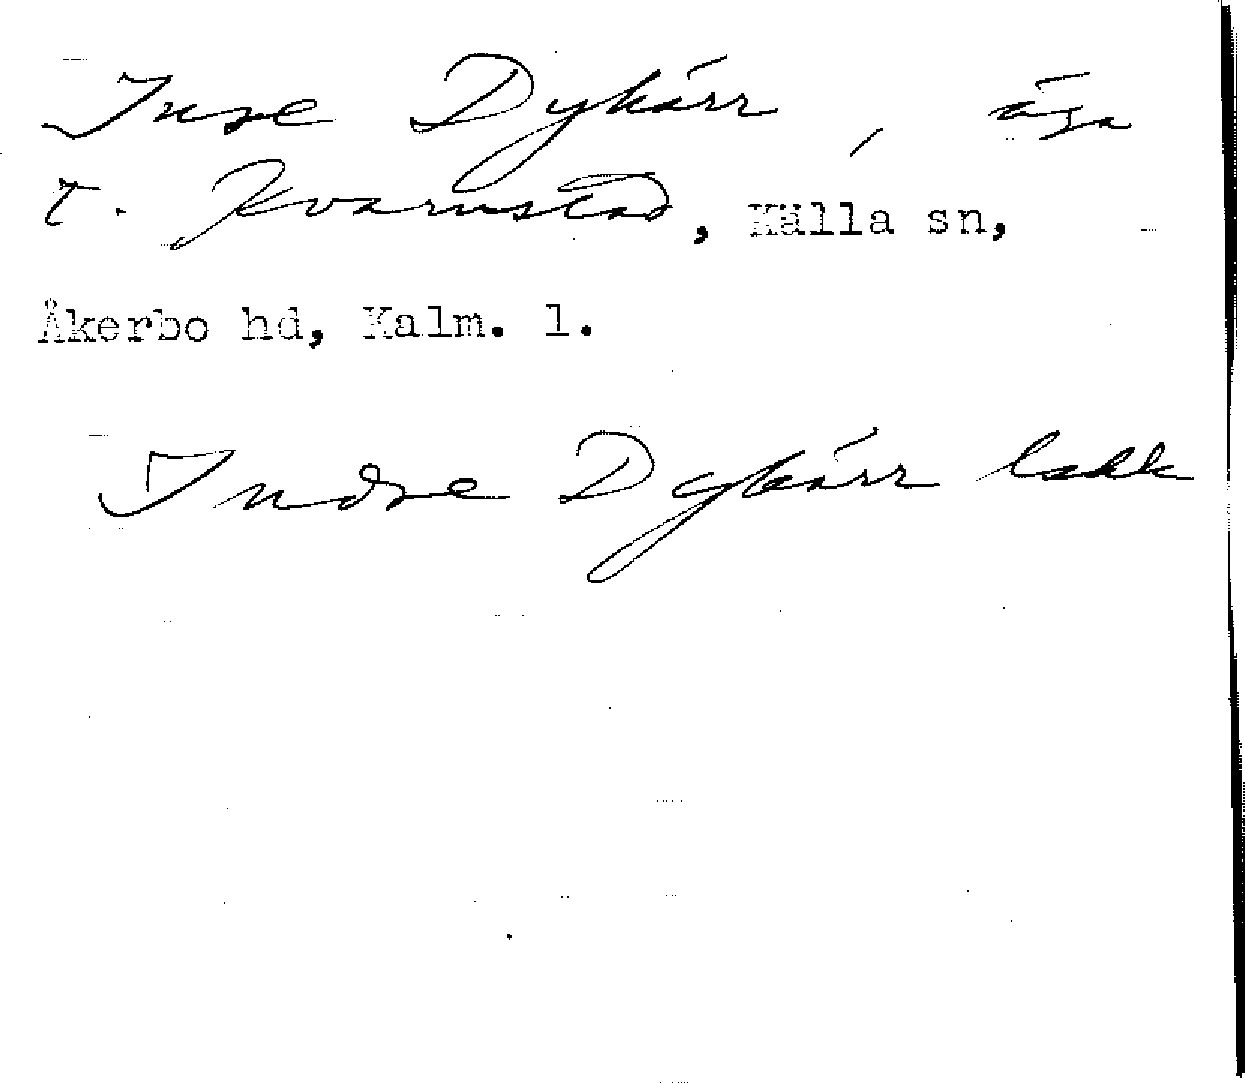 Inre Dykärr, äga
t. Kvarnstad, Källa sn,
Åkerbo hd, Kalm. l.
Indre Dykärr